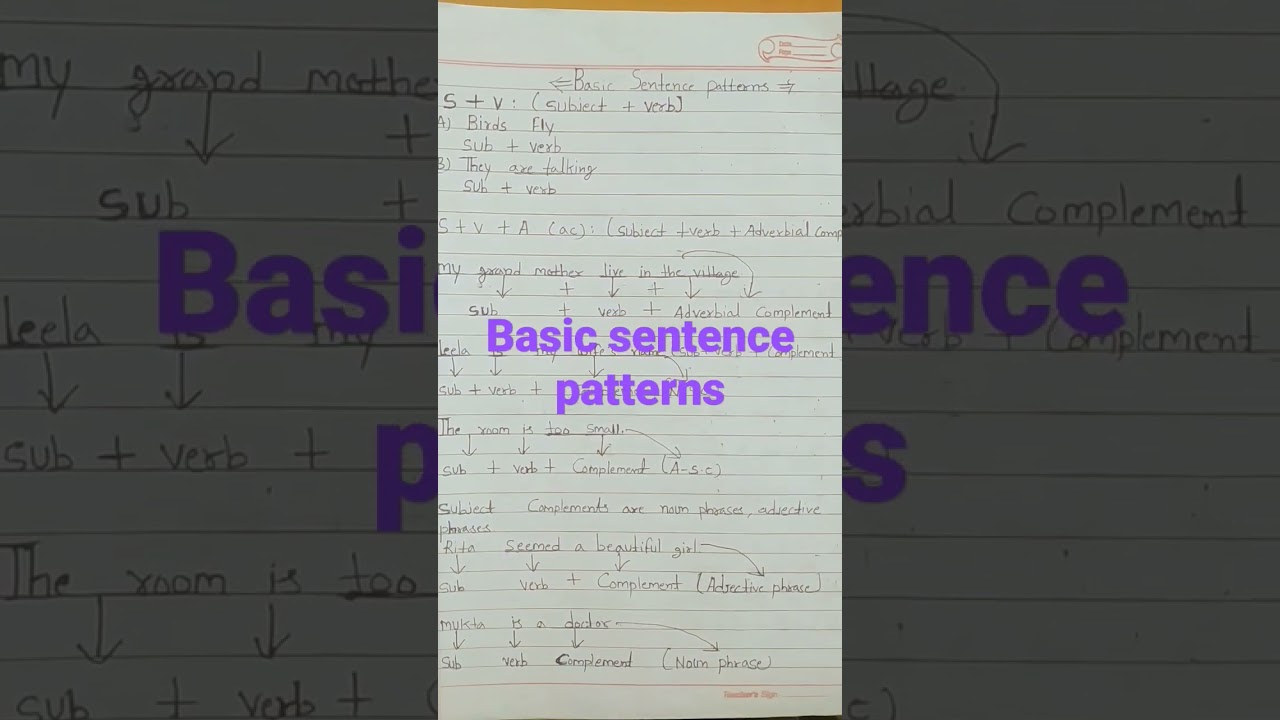 ⇐Basic Sentence patterns ⇒
S + V : (subject + verb]
A) Birds Fly
sub + verb
B) They are talking
sub + verb
S + V + A (ac) : (subject +verb + Adverbial Comp
My grand mother live in the village
+ +
sub + verb + Adverbial Complement
Basic sentence
leela is my wife's Complement
sub + verb +
patterns
The room is too small.
sub + verb + Complement (A-s.c)
Subject Complements are noun phrases, adjective
phrases
Rita seemed a beautiful girl.
sub verb + Complement (Adjective phrase)
mukta is a doctor
sub verb Complement (Noun phrase)
Reacher's Sign